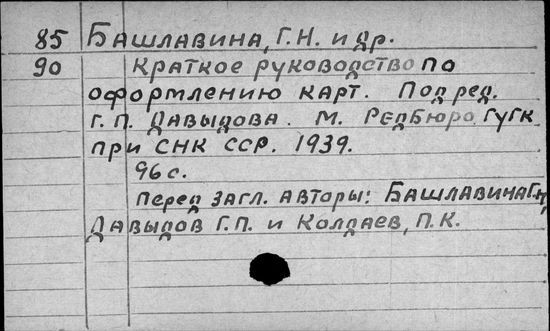 85 Башлавина, Г.Н. и др.
90 Краткое руководство по
оформлению карт. Под ред.
Г.П. Давыдова. М. Редбюро ГУГК
при СНК ССР. 1939.
96 с.
Перед загл. авторы: Башлавина Г.Н,
Давыдов Г.П. и Колдаев, П.К.